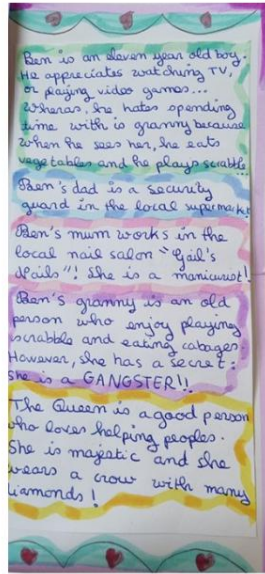 Ben is an eleven year old boy.
He appreciates watching TV,
or playing video games...
Wheras, he hates spending
time with is granny because
when he sees her, he eats
vegetables and he plays scrabble...
Ben's dad is a security
guard in the local supermarket
Ben's mum works in the
local nail salon "Gail's
Nails"! She is a manicurist!
Ben's granny is an old
person who enjoy playing
scrabble and eating cabages.
However, she has a secret:
she is a GANGSTER!!
The Queen is a good person
who loves helping peoples.
She is majestic and she
wears a crow with many
diamonds!